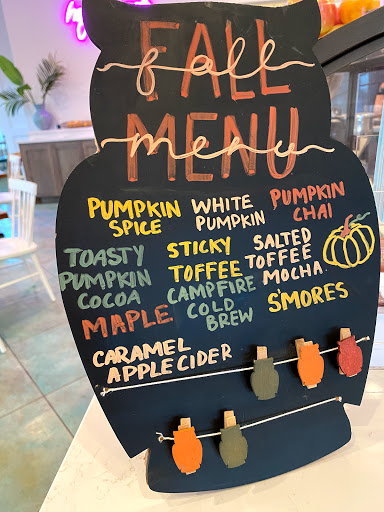 FALL
fall
MENU
menu
PUMPKIN SPICE
WHITE PUMPKIN
PUMPKIN CHAI
TOASTY PUMPKIN COCOA
STICKY TOFFEE
SALTED TOFFEE MOCHA
CAMPFIRE COLD BREW
S'MORES
MAPLE
CARAMEL APPLE CIDER